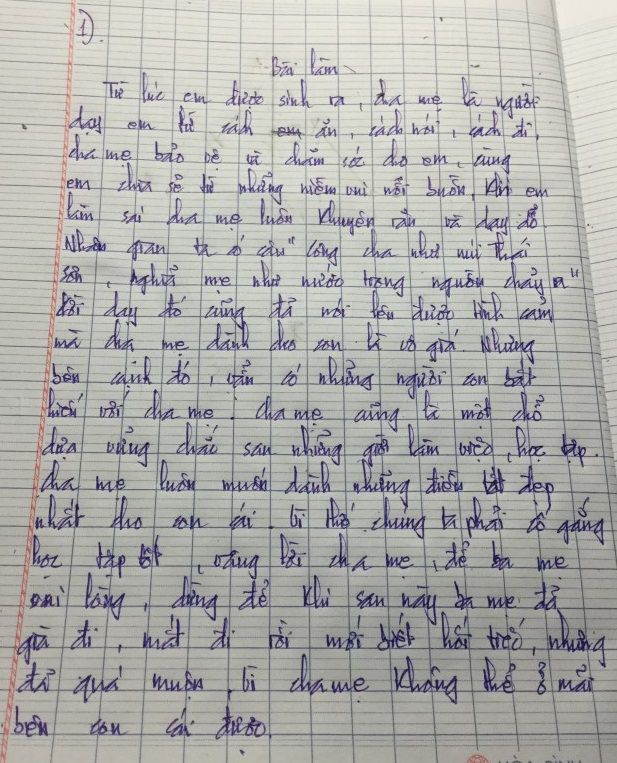 1)
Bài làm
Từ lúc em được sinh ra, cha mẹ là người
dạy em từ cách ăn, cách nói, cách đi,
cha mẹ bảo vệ và chăm sóc cho em, cùng
em chia sẻ từ những niềm vui nỗi buồn, khi em
làm sai cha mẹ luôn khuyên răn và dạy dỗ.
Nhân gian ta có câu "Công cha như núi Thái
sơn, nghĩa mẹ như nước trong nguồn chảy ra"
lời dạy đó cũng đã nói lên được tình cảm
mà cha mẹ dành cho con là vô giá. Nhưng
bên cạnh đó, vẫn có những người con bất
hiếu với cha mẹ. Cha mẹ cũng là một chỗ
dựa vững chắc sau những giờ làm việc, học tập.
cha mẹ luôn muốn dành những điều tốt đẹp
nhất cho con cái. Vì thế chúng ta phải cố gắng
học tập tốt, vâng lời cha mẹ, để ba mẹ
vui lòng, đừng để khi sau này ba mẹ đã
già đi, mất đi rồi mới biết hối tiếc, nhưng
đã quá muộn, vì cha mẹ không thể ở mãi
bên con cái được.